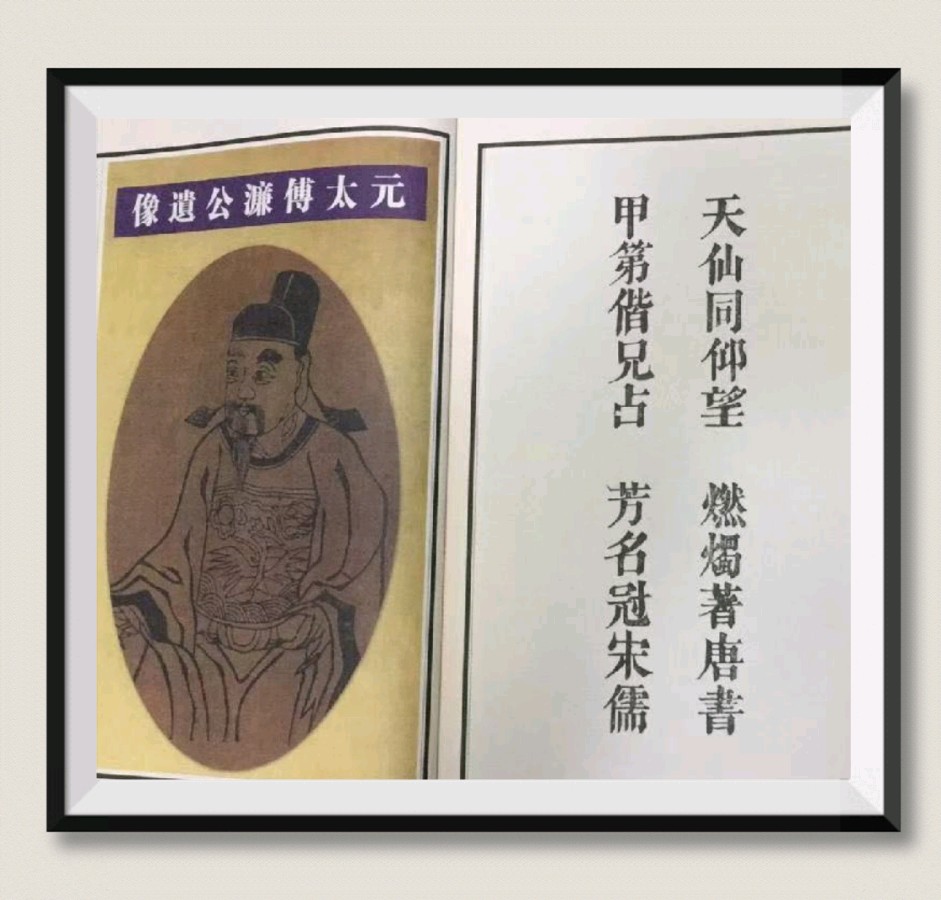 元太傅濂公遺像
天仙同仰望　燃燭著唐書
甲第偕兄占　芳名冠宋儒